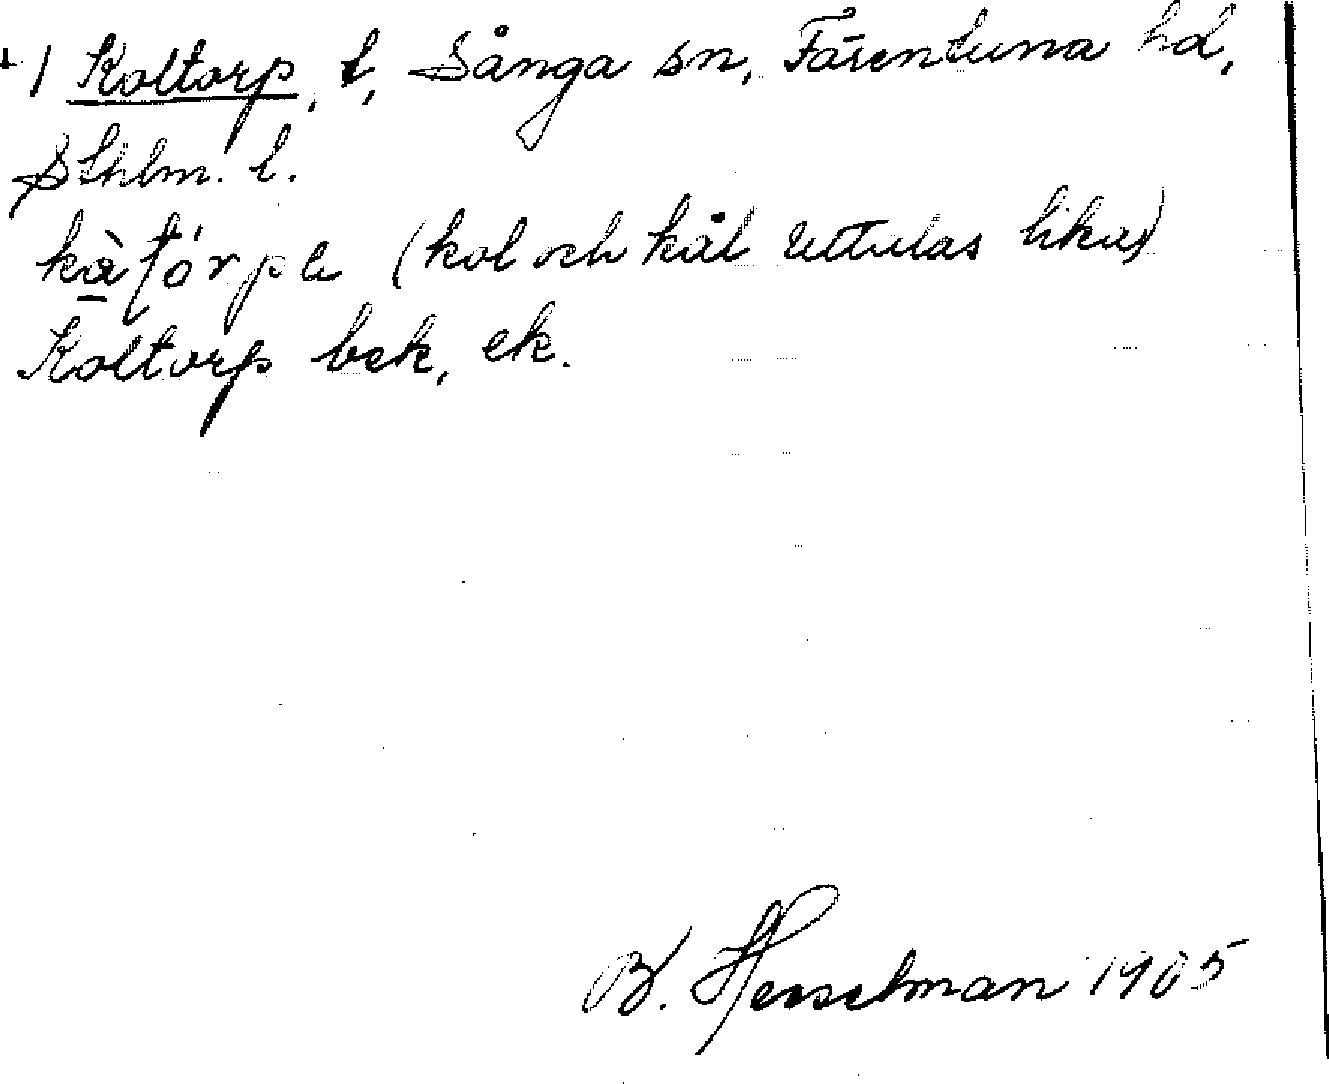 +/ Koltorp, t, Sånga sn, Färentuna hd,
Sthlm. l.
(kol och kål uttalas lika)
Koltorp bek, ek.
B. Hesselman 1905